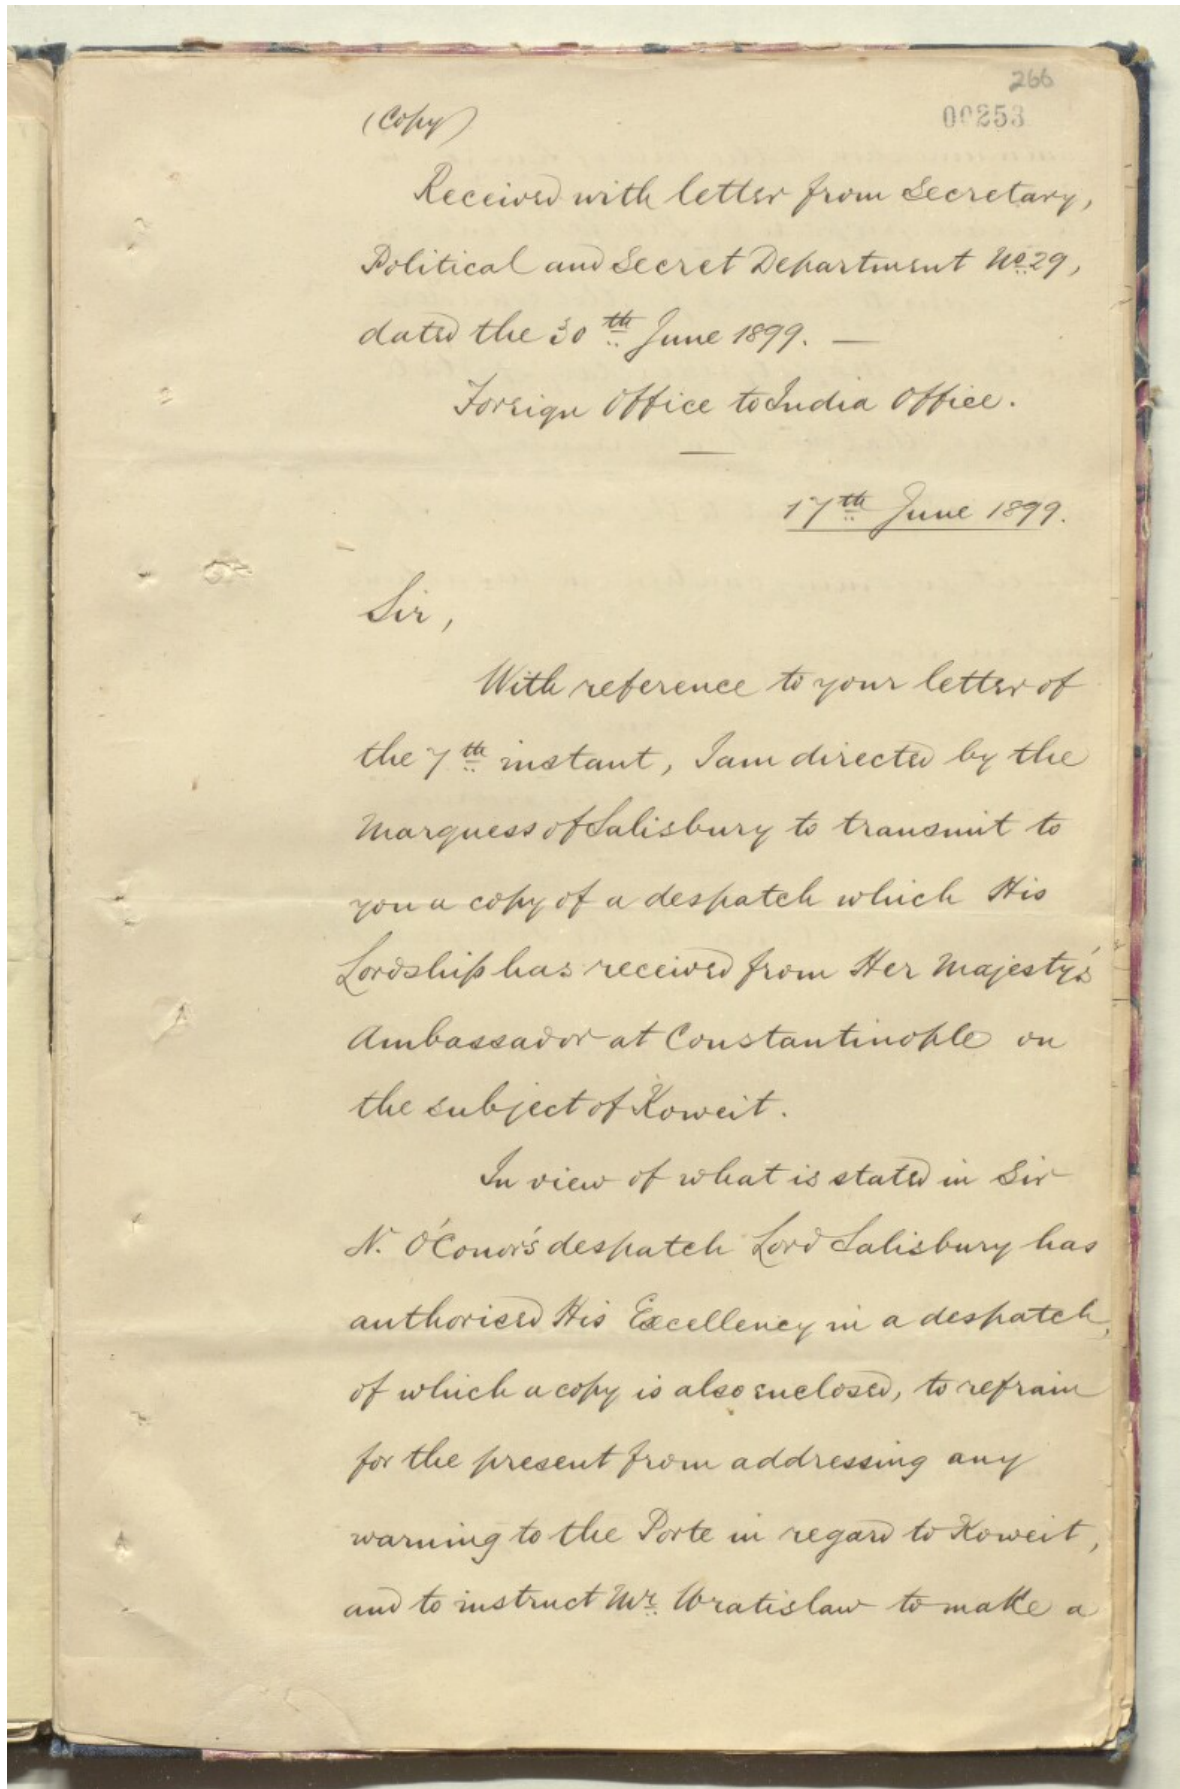 266
00253
(Copy)
Received with letter from Secretary,
Political and Secret Department No. 29,
dated the 30th June 1899. —
Foreign Office to India Office.
17th June 1899.
Sir,
With reference to your letter of
the 7th instant, I am directed by the
Marquess of Salisbury to transmit to
you a copy of a despatch which His
Lordship has received from Her Majesty's
Ambassador at Constantinople on
the subject of Koweit.
In view of what is stated in Sir
N. O'Conor's despatch Lord Salisbury has
authorised His Excellency in a despatch,
of which a copy is also enclosed, to refrain
for the present from addressing any
warning to the Porte in regard to Koweit,
and to instruct Mr. Wratislaw to make a